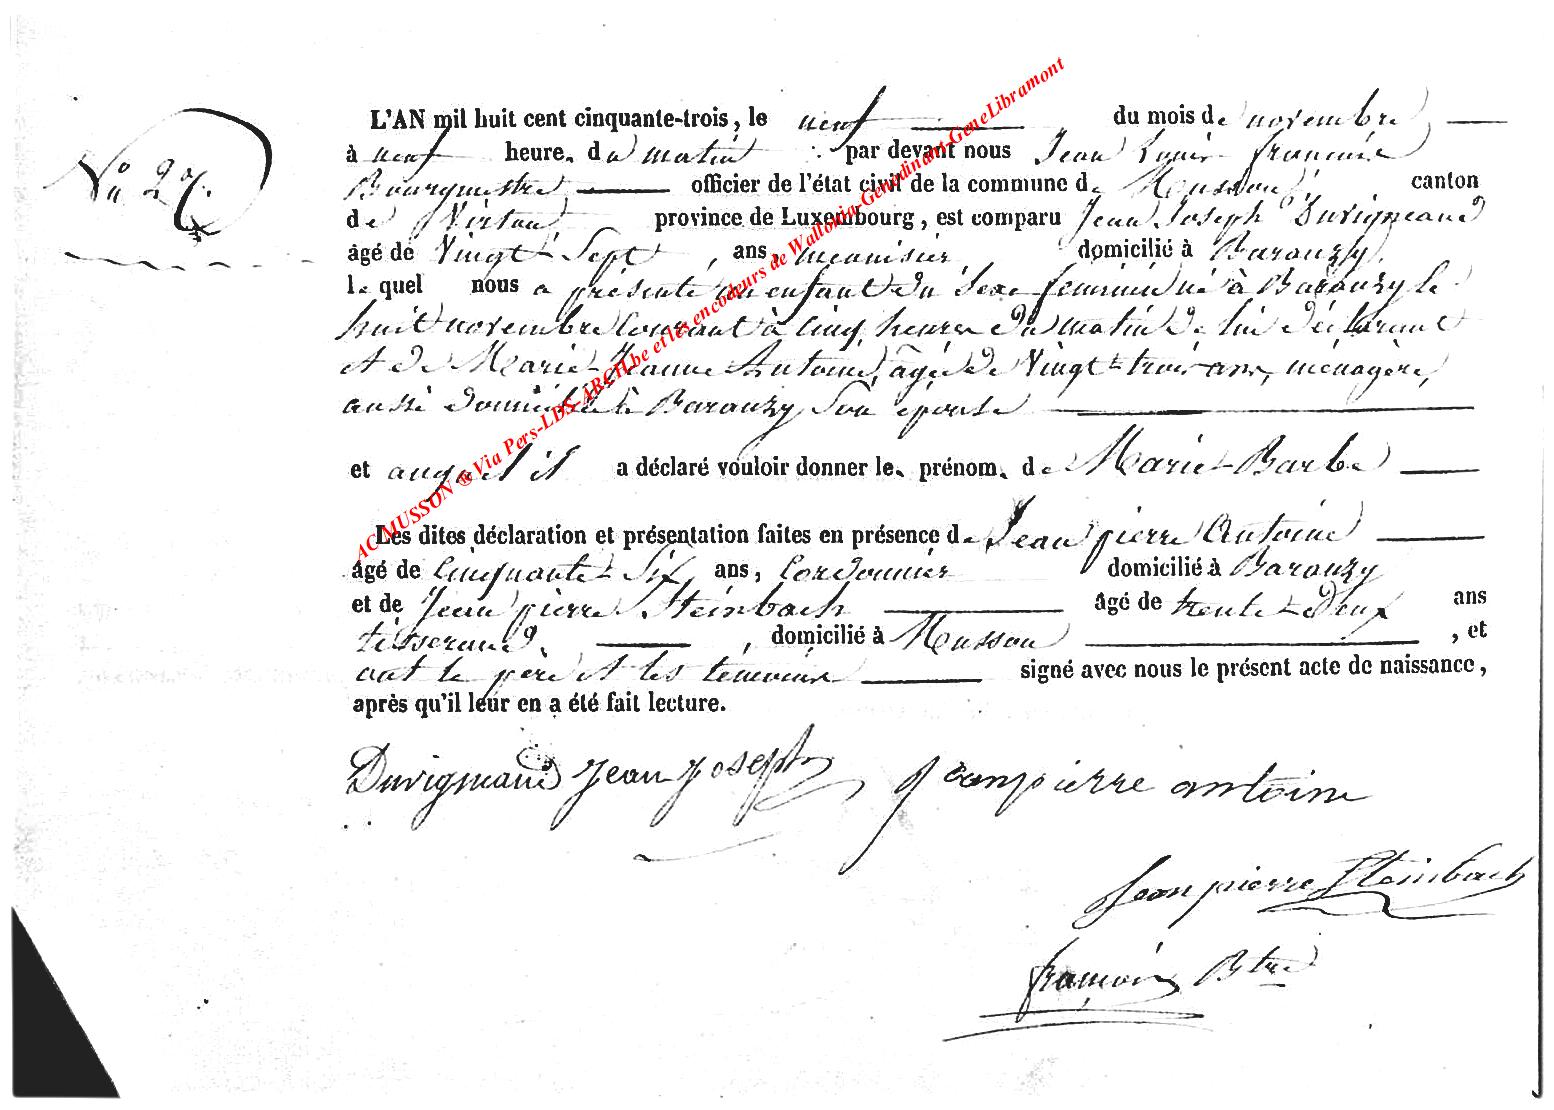 L'AN mil huit cent cinquante-trois, le neuf du mois de novembre
à neuf heure. du matin par devant nous Jean Louis françois
Bourgmestre officier de l'état civil de la commune de Musson, canton
de Virton province de Luxembourg, est comparu Jean Joseph Duvigneaud
âgé de Vingt-Sept ans, menuisier domicilié à Baranzy,
le quel nous a présenté un enfant du sexe féminin né à Baranzy le
huit novembre Courant à Cinq heures du matin de lui déclarant
et de Marie-Jeanne Antoine, âgée de Vingt-trois ans, ménagère,
aussi domiciliée à Baranzy Son épouse
et auquel il a déclaré vouloir donner le. prénom. de Marie-Barbe
Les dites déclaration et présentation faites en présence de Jean pierre Antoine
âgé de Cinquante-Six ans, Cordonnier domicilié à Baranzy
et de Jean pierre Steinbach âgé de trente-deux ans
tisserand, domicilié à Musson, et
ont le père et les témoins signé avec nous le présent acte de naissance,
après qu'il leur en a été fait lecture.
Duvigneaud Jean Joseph Jean pierre antoine
Jean pierre Steinbach
françois Btre
AC MUSSON ® Via Pers-LDS-ARCH.be et les encodeurs de Wallonia-Genedinant-GeneLibramont